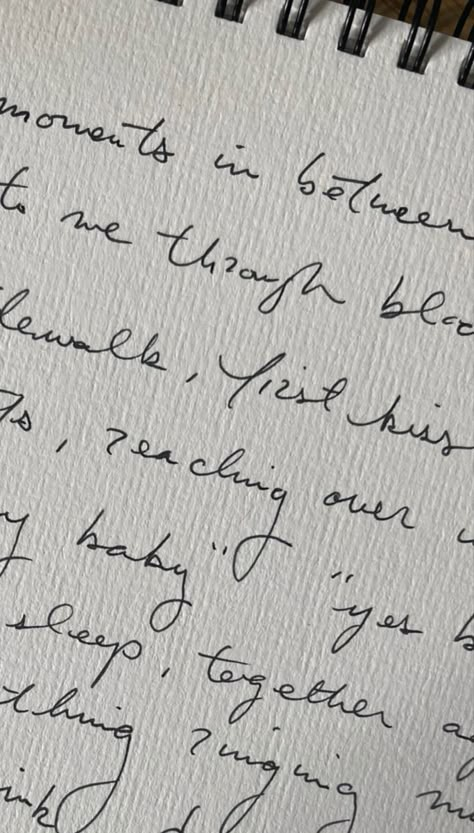 moments in between
to me through
, first kiss
, reaching over
baby" "yes
sleep, together
thing ringing